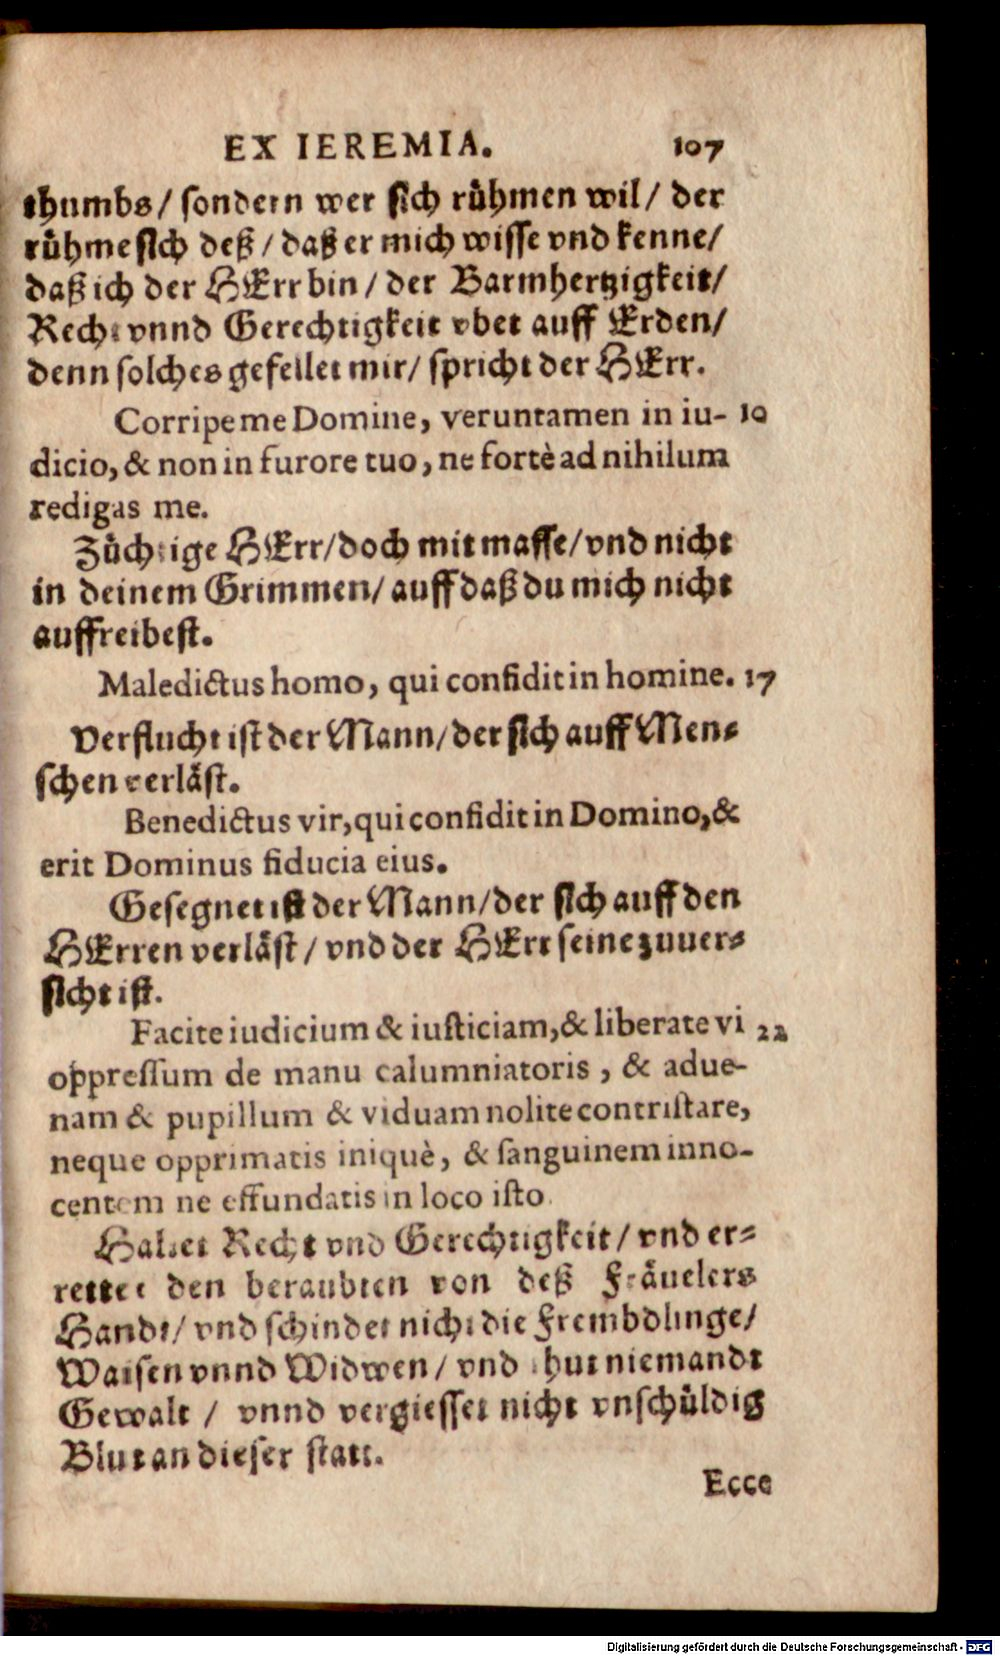 EX IEREMIA. 107
thumbs / sondern wer sich rühmen wil / der
rühme sich deß / daß er mich wisse vnd kenne /
daß ich der HErr bin / der Barmhertzigkeit /
Recht vnnd Gerechtigkeit vbet auff Erden /
denn solches gefellet mir / spricht der HErr.
Corripe me Domine, veruntamen in iu- 10
dicio, & non in furore tuo, ne fortè ad nihilum
redigas me.
Züchtige HErr / doch mit masse / vnd nicht
in deinem Grimmen / auff daß du mich nicht
auffreibest.
Maledictus homo, qui confidit in homine. 17
Verflucht ist der Mann / der sich auff Men-
schen verläst.
Benedictus vir, qui confidit in Domino, &
erit Dominus fiducia eius.
Gesegnet ist der Mann / der sich auff den
HErren verläst / vnd der HErr seine zuuer-
sicht ist.
Facite iudicium & iusticiam, & liberate vi 22
oppressum de manu calumniatoris, & adue-
nam & pupillum & viduam nolite contristare,
neque opprimatis iniquè, & sanguinem inno-
centem ne effundatis in loco isto.
Haltet Recht vnd Gerechtigkeit / vnd er-
rettet den beraubten von deß Fräuelers
Handt / vnd schindet nicht die Frembdlinge /
Waisen vnnd Widwen / vnd thut niemandt
Gewalt / vnnd vergiesset nicht vnschüldig
Blut an dieser statt.
Ecce
Digitalisierung gefördert durch die Deutsche Forschungsgemeinschaft - DFG